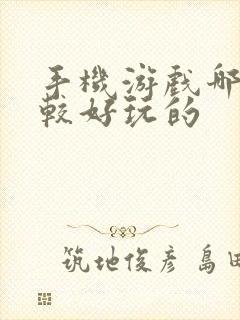 手機游戲哪
較好玩的
筑地俊彦 島田